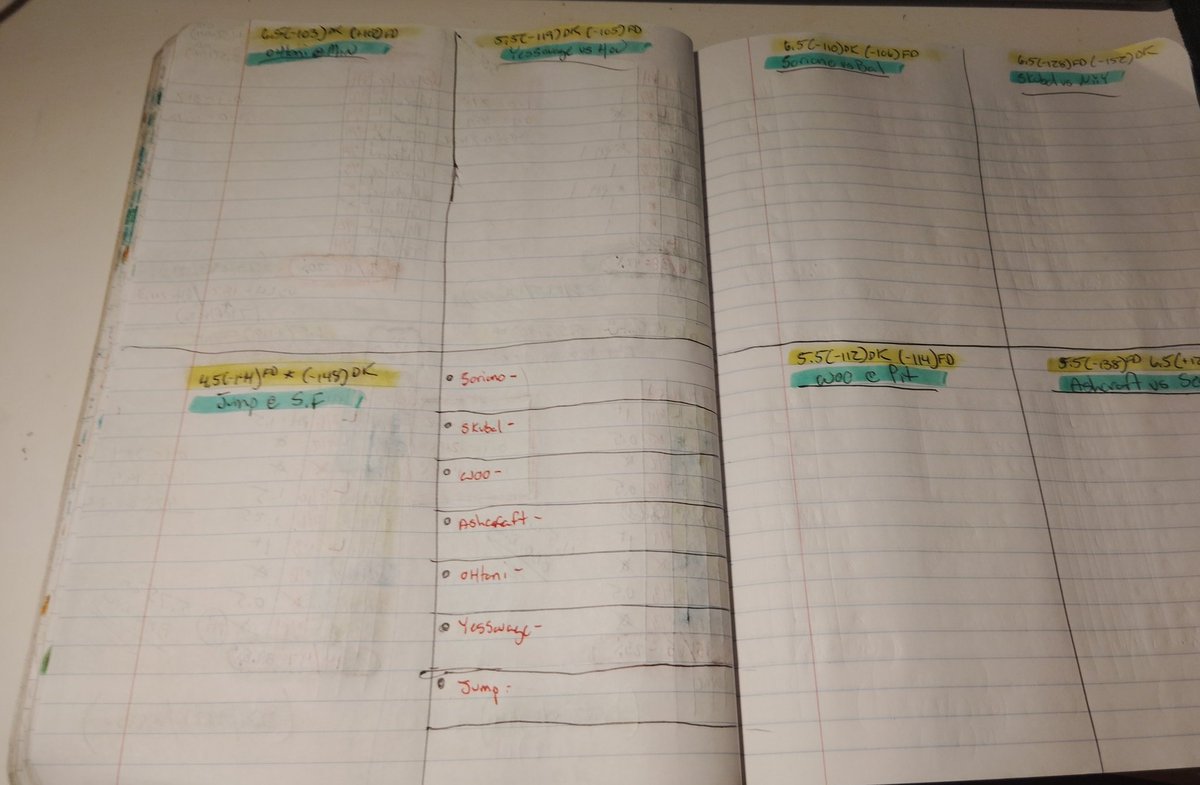 6.5(-103)DK (+100)FD
OHtani @ Min
5.5(-119)DK (-105)FD
Yessavage vs Hou
6.5(-110)DK (-106)FD
Soriano vs Bal
6.5(-128)FD (-152)DK
Skubal vs NYY
4.5(-141)FD * (-145)DK
Jump @ S.F
Soriano-
Skubal-
Woo-
Ashcraft-
OHtani-
Yessavage-
Jump-
5.5(-112)DK (-114)FD
Woo @ Pit
5.5(-138)FD 6.5(+12
Ashcraft vs Se